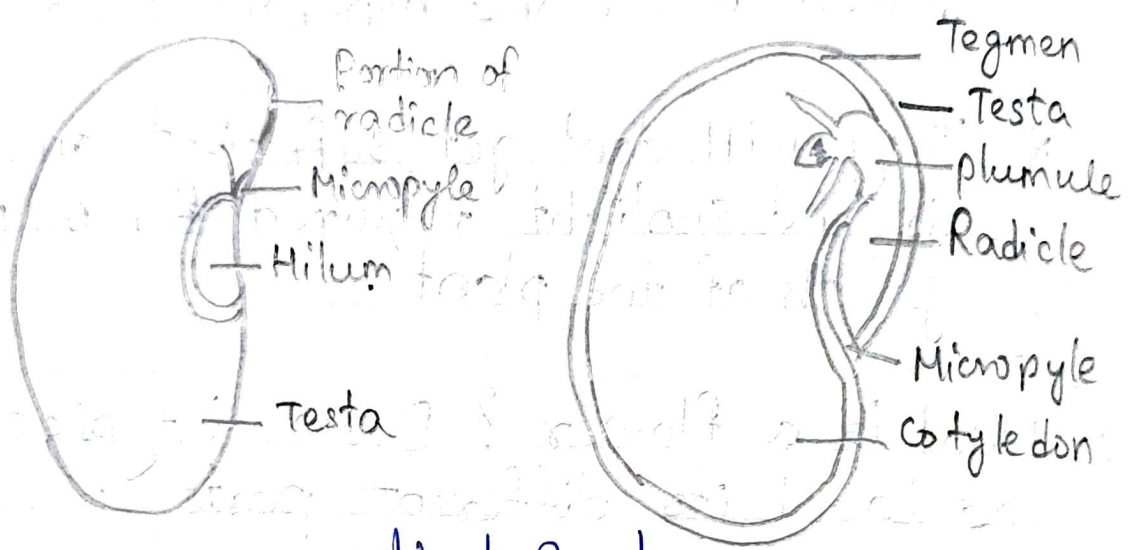 Portion of
radicle
Micropyle
Hilum
Testa
Tegmen
Testa
plumule
Radicle
Micropyle
Cotyledon